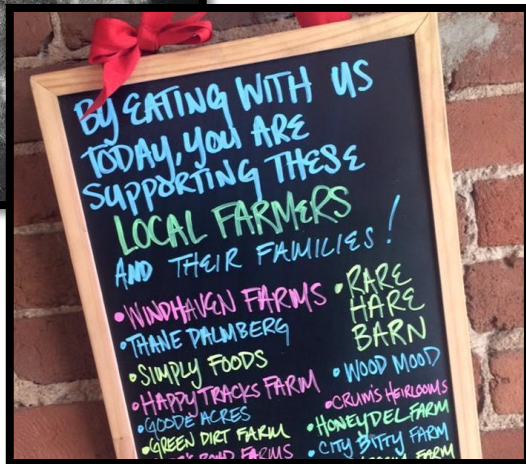 BY EATING WITH US
TODAY, YOU ARE
SUPPORTING THESE
LOCAL FARMERS
AND THEIR FAMILIES!
•WINDHAVEN FARMS
•THANE PALMBERG
•SIMPLY FOODS
•HAPPY TRACKS FARM
•GOODE ACRES
•GREEN DIRT FARM
ROAD FARMS
•RARE
HARE
BARN
•WOOD MOOD
•CRUM'S HEIRLOOMS
•HONEYDEL FARM
•CITY BITTY FARM
FARM